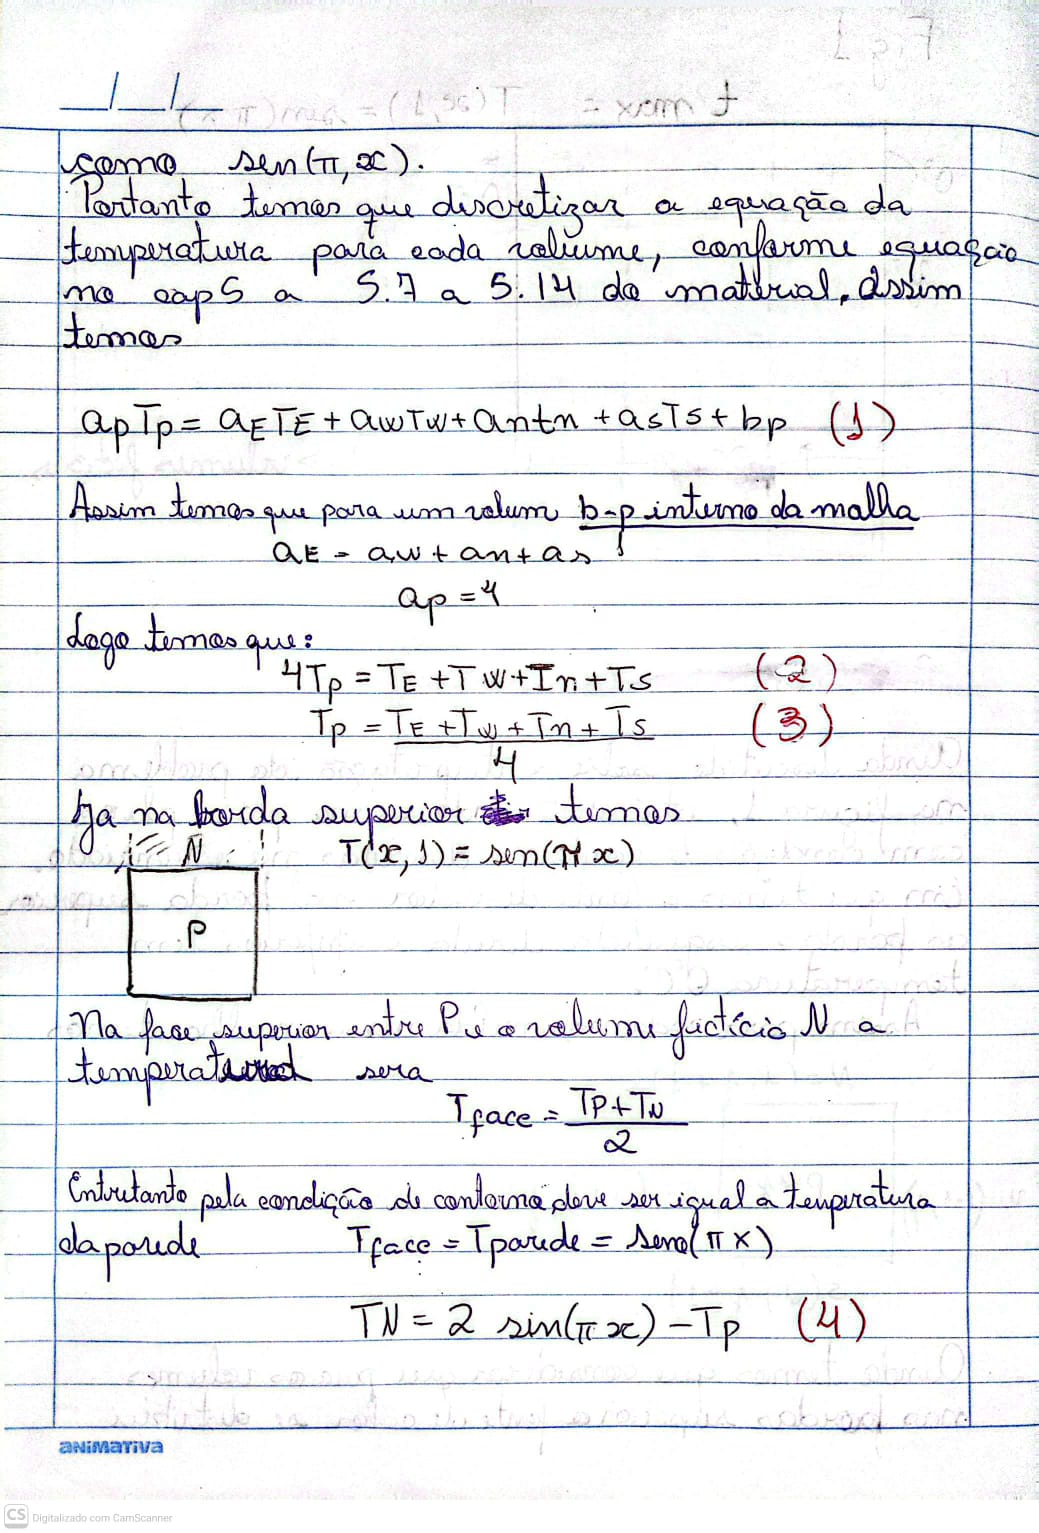 __/__/__
como sen(π, x).
Portanto temos que discretizar a equação da
temperatura para cada volume, conforme equação
no cap5 a 5.7 a 5.14 do material. Assim
temos
apTp = aETE + awTw + antn + asTs + bp (1)
Assim temos que para um volum b-p interno da malha
aE = aw + an + as
ap = 4
Logo temos que:
4Tp = TE + Tw + Tn + Ts (2)
Tp = TE + Tw + Tn + Ts (3)
4
Ja na borda superior temos
N T(x,1) = sen(π x)
P
Na face superior entre P e o volume fictício N a
temperatura sera
Tface = TP + TN
2
Entretanto pela condição de contorno deve ser igual a temperatura
da parede Tface = Tparede = seno(π x)
TN = 2 sin(π x) - Tp (4)
ANIMATIVA
CS Digitalizado com CamScanner